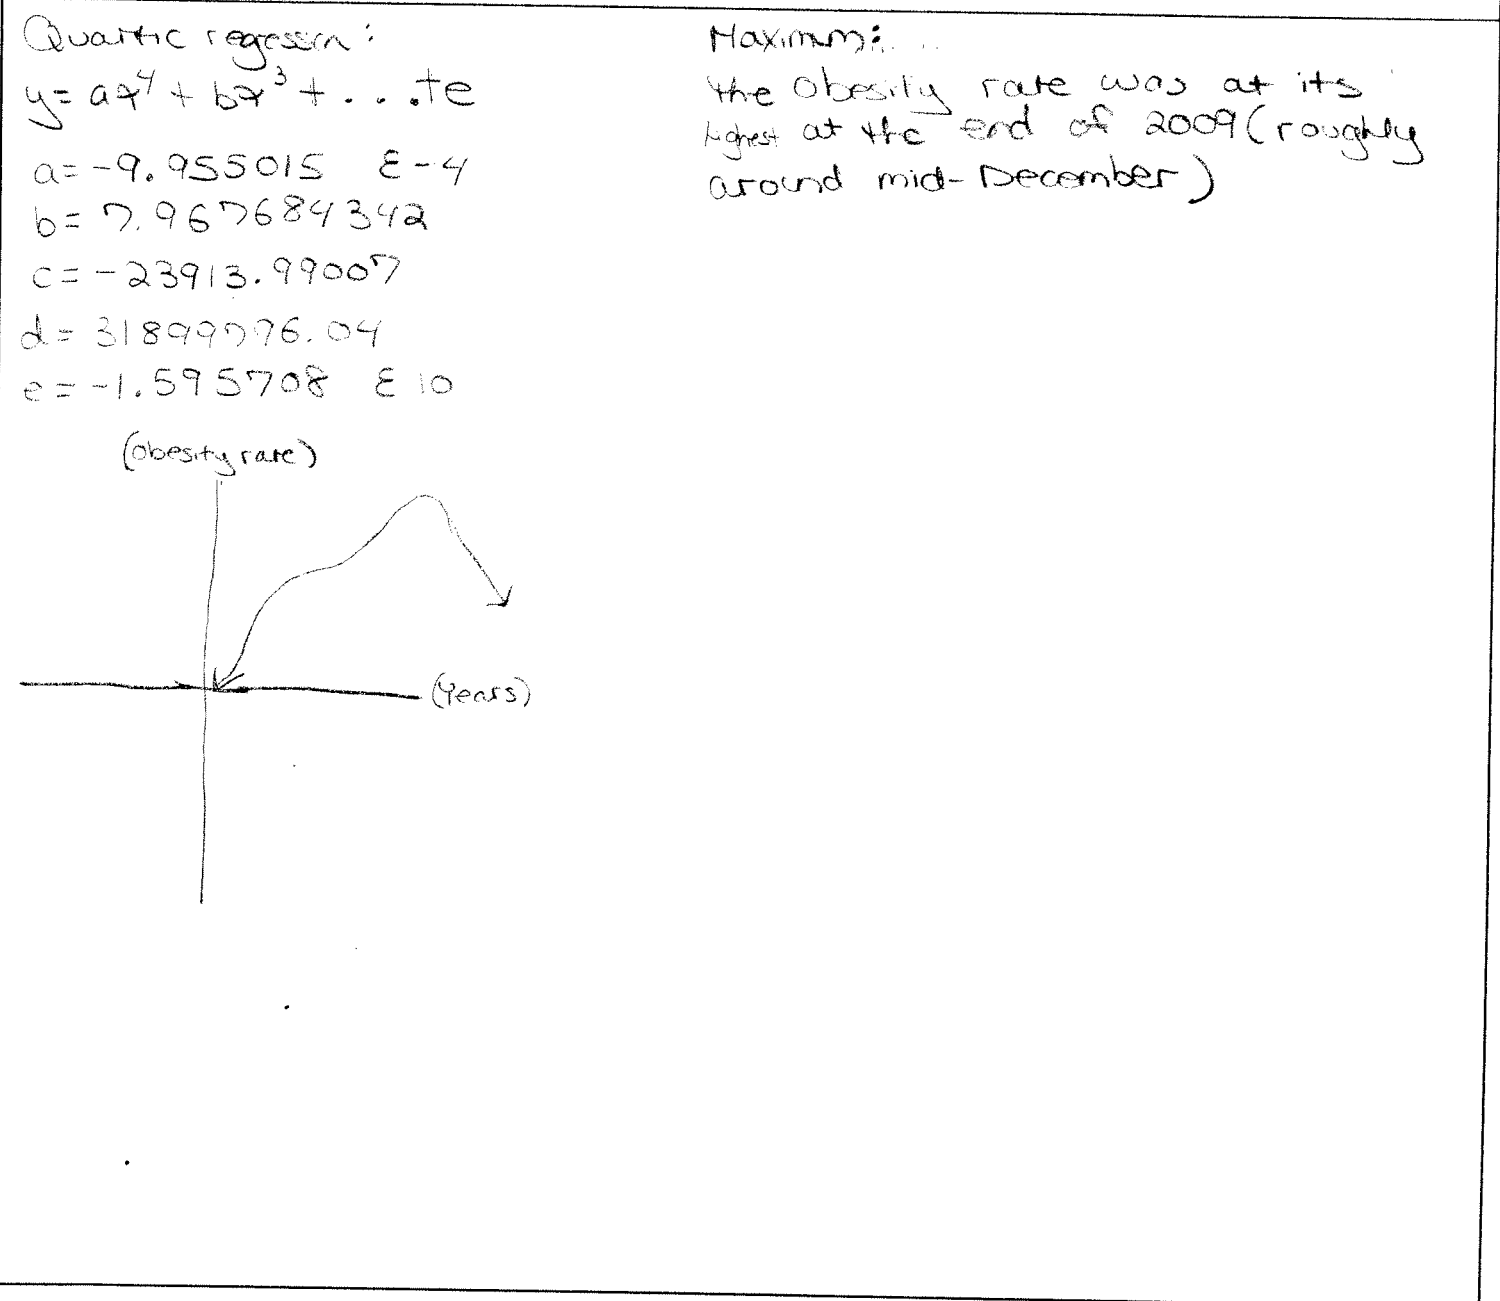 Quartic regression:
y = ax⁴ + bx³ + . . . + e
a = -9.955015 E-4
b = 7.967684342
c = -23913.99007
d = 31899776.04
e = -1.595708 E10
(obesity rate)
(Years)
Maximum:
the obesity rate was at its
highest at the end of 2009 (roughly
around mid-December)